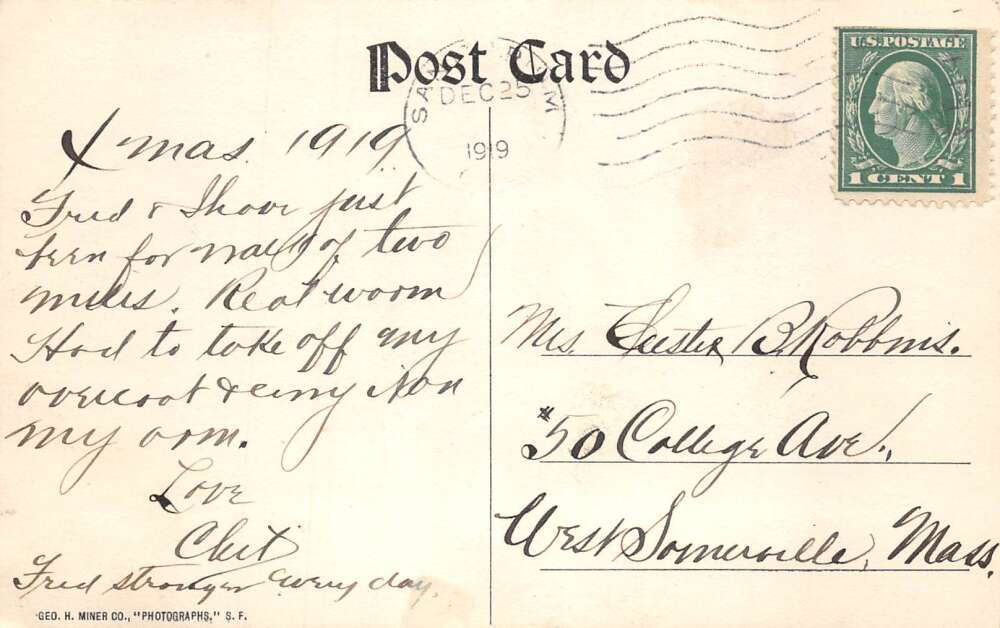 Post Card
DEC 25
1919
U.S. POSTAGE
1 CENT 1
Xmas. 1919
Fred & I have just
been for walk of two
miles. Real warm
Had to take off my
overcoat & carry it on
my arm.
Love
Chet
Fred stronger every day.
Mrs. Chester B. Robbins.
#50 College Ave.,
West Somerville, Mass.
GEO. H. MINER CO., "PHOTOGRAPHS," S. F.